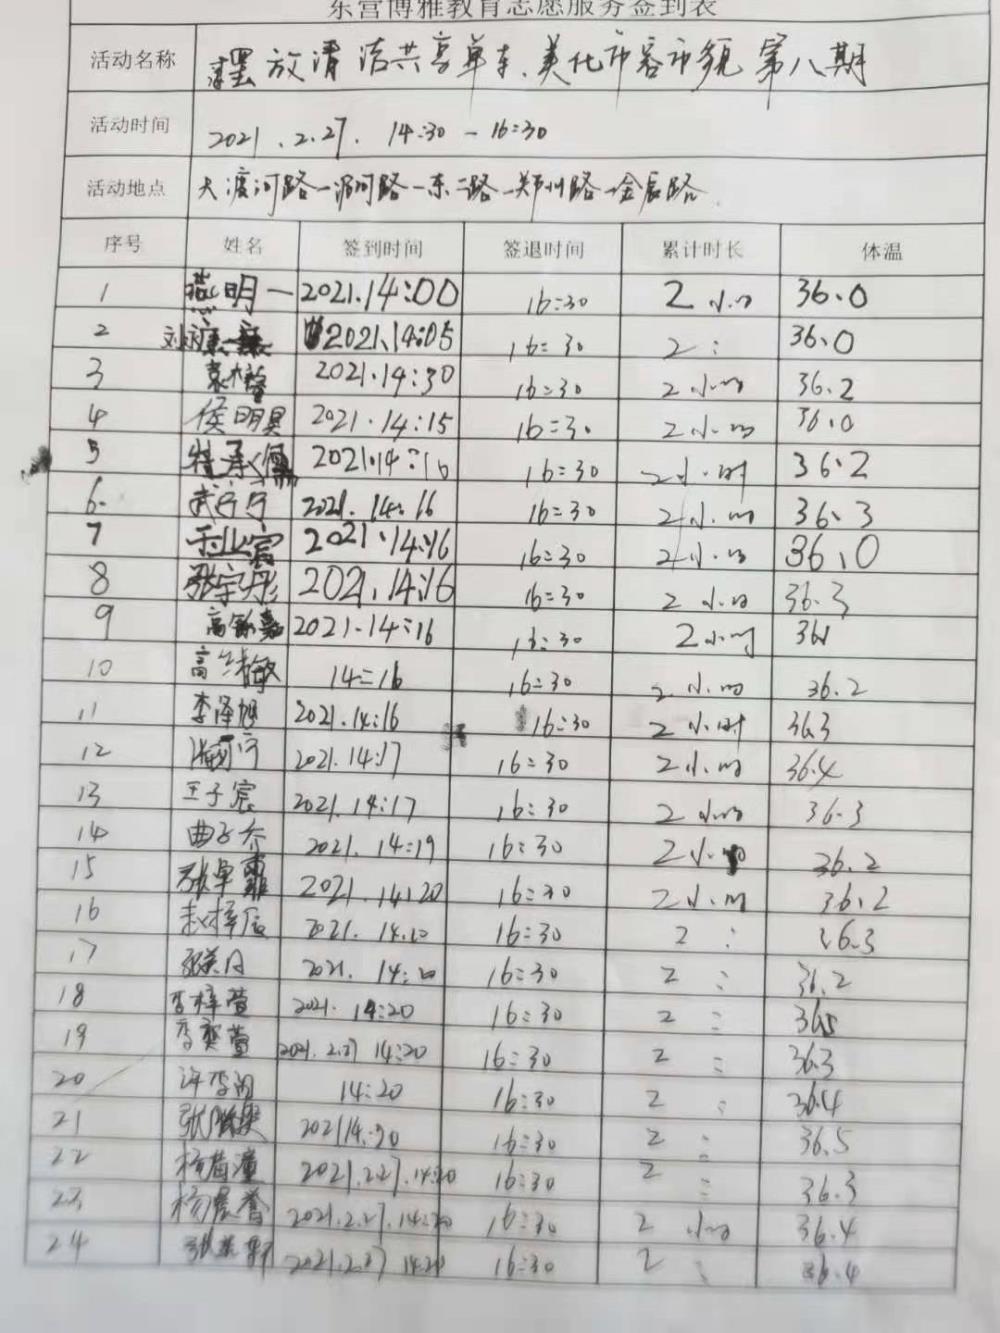 东营博雅教育志愿服务签到表
活动名称 摆放清洁共享单车、美化市容市貌 第八期
活动时间 2021.2.27. 14:30-16:30
活动地点 大渡河路-浏河路-东二路-郑州路-金辰路
序号 姓名 签到时间 签退时间 累计时长 体温
1 燕明一 2021.14:00 16:30 2小时 36.0
2 2021.14:05 16:30 2 : 36.0
3 2021.14:30 16:30 2小时 36.2
4 侯明昊 2021.14:15 16:30 2小时 36.0
5 2021.14:16 16:30 2小时 36.2
6 武宁宁 2021.14:16 16:30 2小时 36.3
7 于业宸 2021.14:16 16:30 2小时 36.0
8 张宇彤 2021.14:16 16:30 2小时 36.3
9 2021.14:16 16:30 2小时 361
10 14:16 16:30 2小时 36.2
11 李泽旭 2021.14:16 16:30 2小时 36.3
12 2021.14:17 16:30 2小时 36.4
13 王子宸 2021.14:17 16:30 2小时 36.3
14 曲子乔 2021.14:19 16:30 2小时 36.2
15 2021.14:20 16:30 2小时 36.2
16 赵梓辰 2021. 16:30 2 : 36.3
17 2021. 14:20 16:30 2 : 36.2
18 李梓萱 2021. 14:20 16:30 2 : 36.5
19 李奕萱 2021.2.27 14:20 16:30 2 : 36.3
20 14:20 16:30 2 : 36.4
21 2021 14:20 16:30 2 : 36.5
22 2021.2.27.14:20 16:30 2 : 36.3
23 杨晨誉 2021.2.27.14:20 16:30 2小时 36.4
24 2021.2.27 14:20 16:30 2 : 36.4